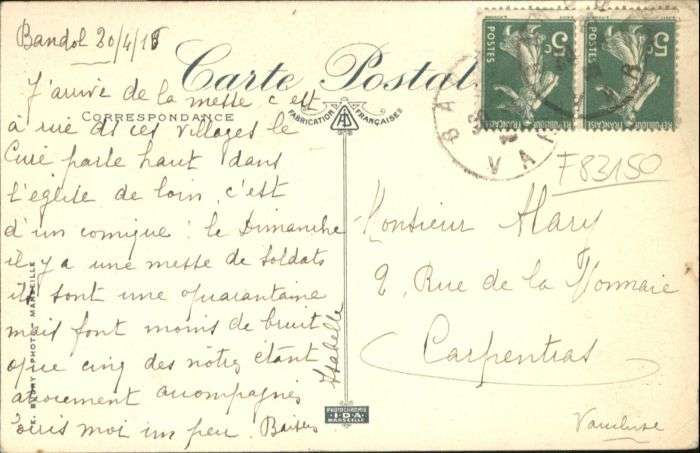 Bandol 20/4/18
Carte Postale
CORRESPONDANCE
FABRICATION FRANÇAISE
J'arrive de la messe c'est
à rire ds ces villages le
Curé parle haut dans
l'église de loin, c'est
d'un comique ! le Dimanche
il y a une messe de soldats
ils sont une quarantaine
mais font moins de bruit
que cinq des nôtres étant
accompagnés
Ecris moi un peu. Baisers
Isabelle
5c
POSTES
REPUBLIQUE FRANÇAISE
5c
POSTES
REPUBLIQUE FRANÇAISE
VAR
F83150
Monsieur Mary
2, Rue de la Monnaie
Carpentras
Vaucluse
PHOTOCHROMIE
I·D·A
MARSEILLE
"PHOTO" MARSEILLE